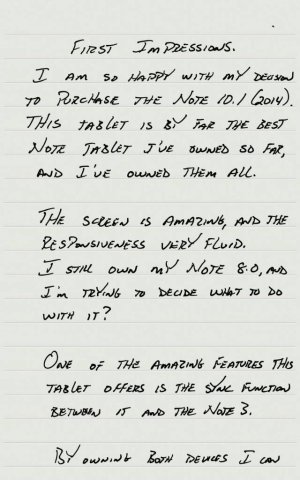 First Impressions.
I am so happy with my decision
to purchase the Note 10.1 (2014).
This tablet is by far the best
Note Tablet I've owned so far,
and I've owned them all.
The screen is amazing, and the
responsiveness very fluid.
I still own my Note 8.0, and
I'm trying to decide what to do
with it?
One of the amazing features this
tablet offers is the sync function
between it and the Note 3.
By owning both devices I can